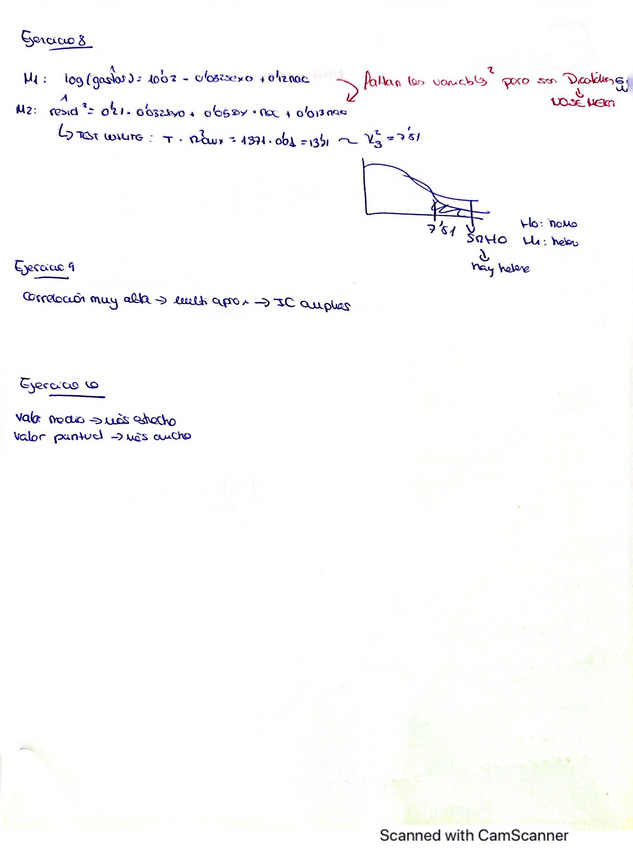 Ejercicio 8
M1: log(gastos) = 10'02 - 0'0525exo + 0'12nac
Faltan las variables² pero son Dicotómicas
NO SE METEN
M2: resid² = 0'21 - 0'032sexo + 0'05 · nac + 0'013 nac
↳ TEST WHITE: T · R²aux = 1371 · 0'01 = 13'71 ~ X²3 = 7'81
7'81
SRHO
H0: homo
H1: hetero
hay hetero
Ejercicio 9
Correlación muy alta → multi aprox → IC amplios
Ejercicio 10
valor medio → más estrecho
valor puntual → más ancho
Scanned with CamScanner